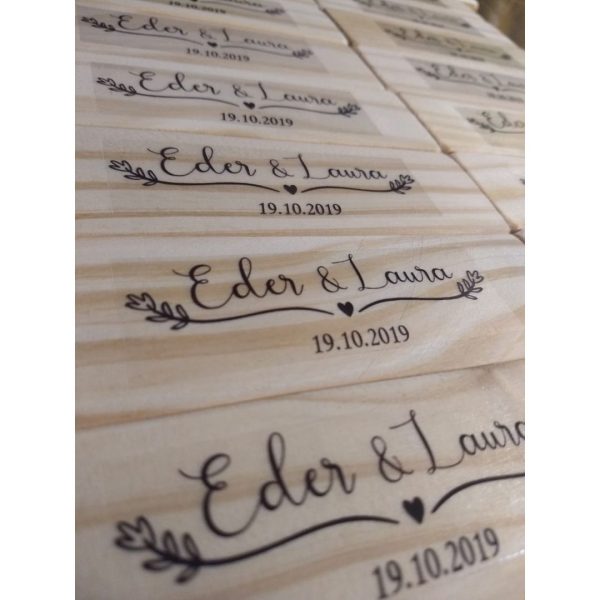 Eder & Laura
19.10.2019
Eder & Laura
19.10.2019
Eder & Laura
19.10.2019
Eder & Laura
19.10.2019
Eder & Laura
19.10.2019